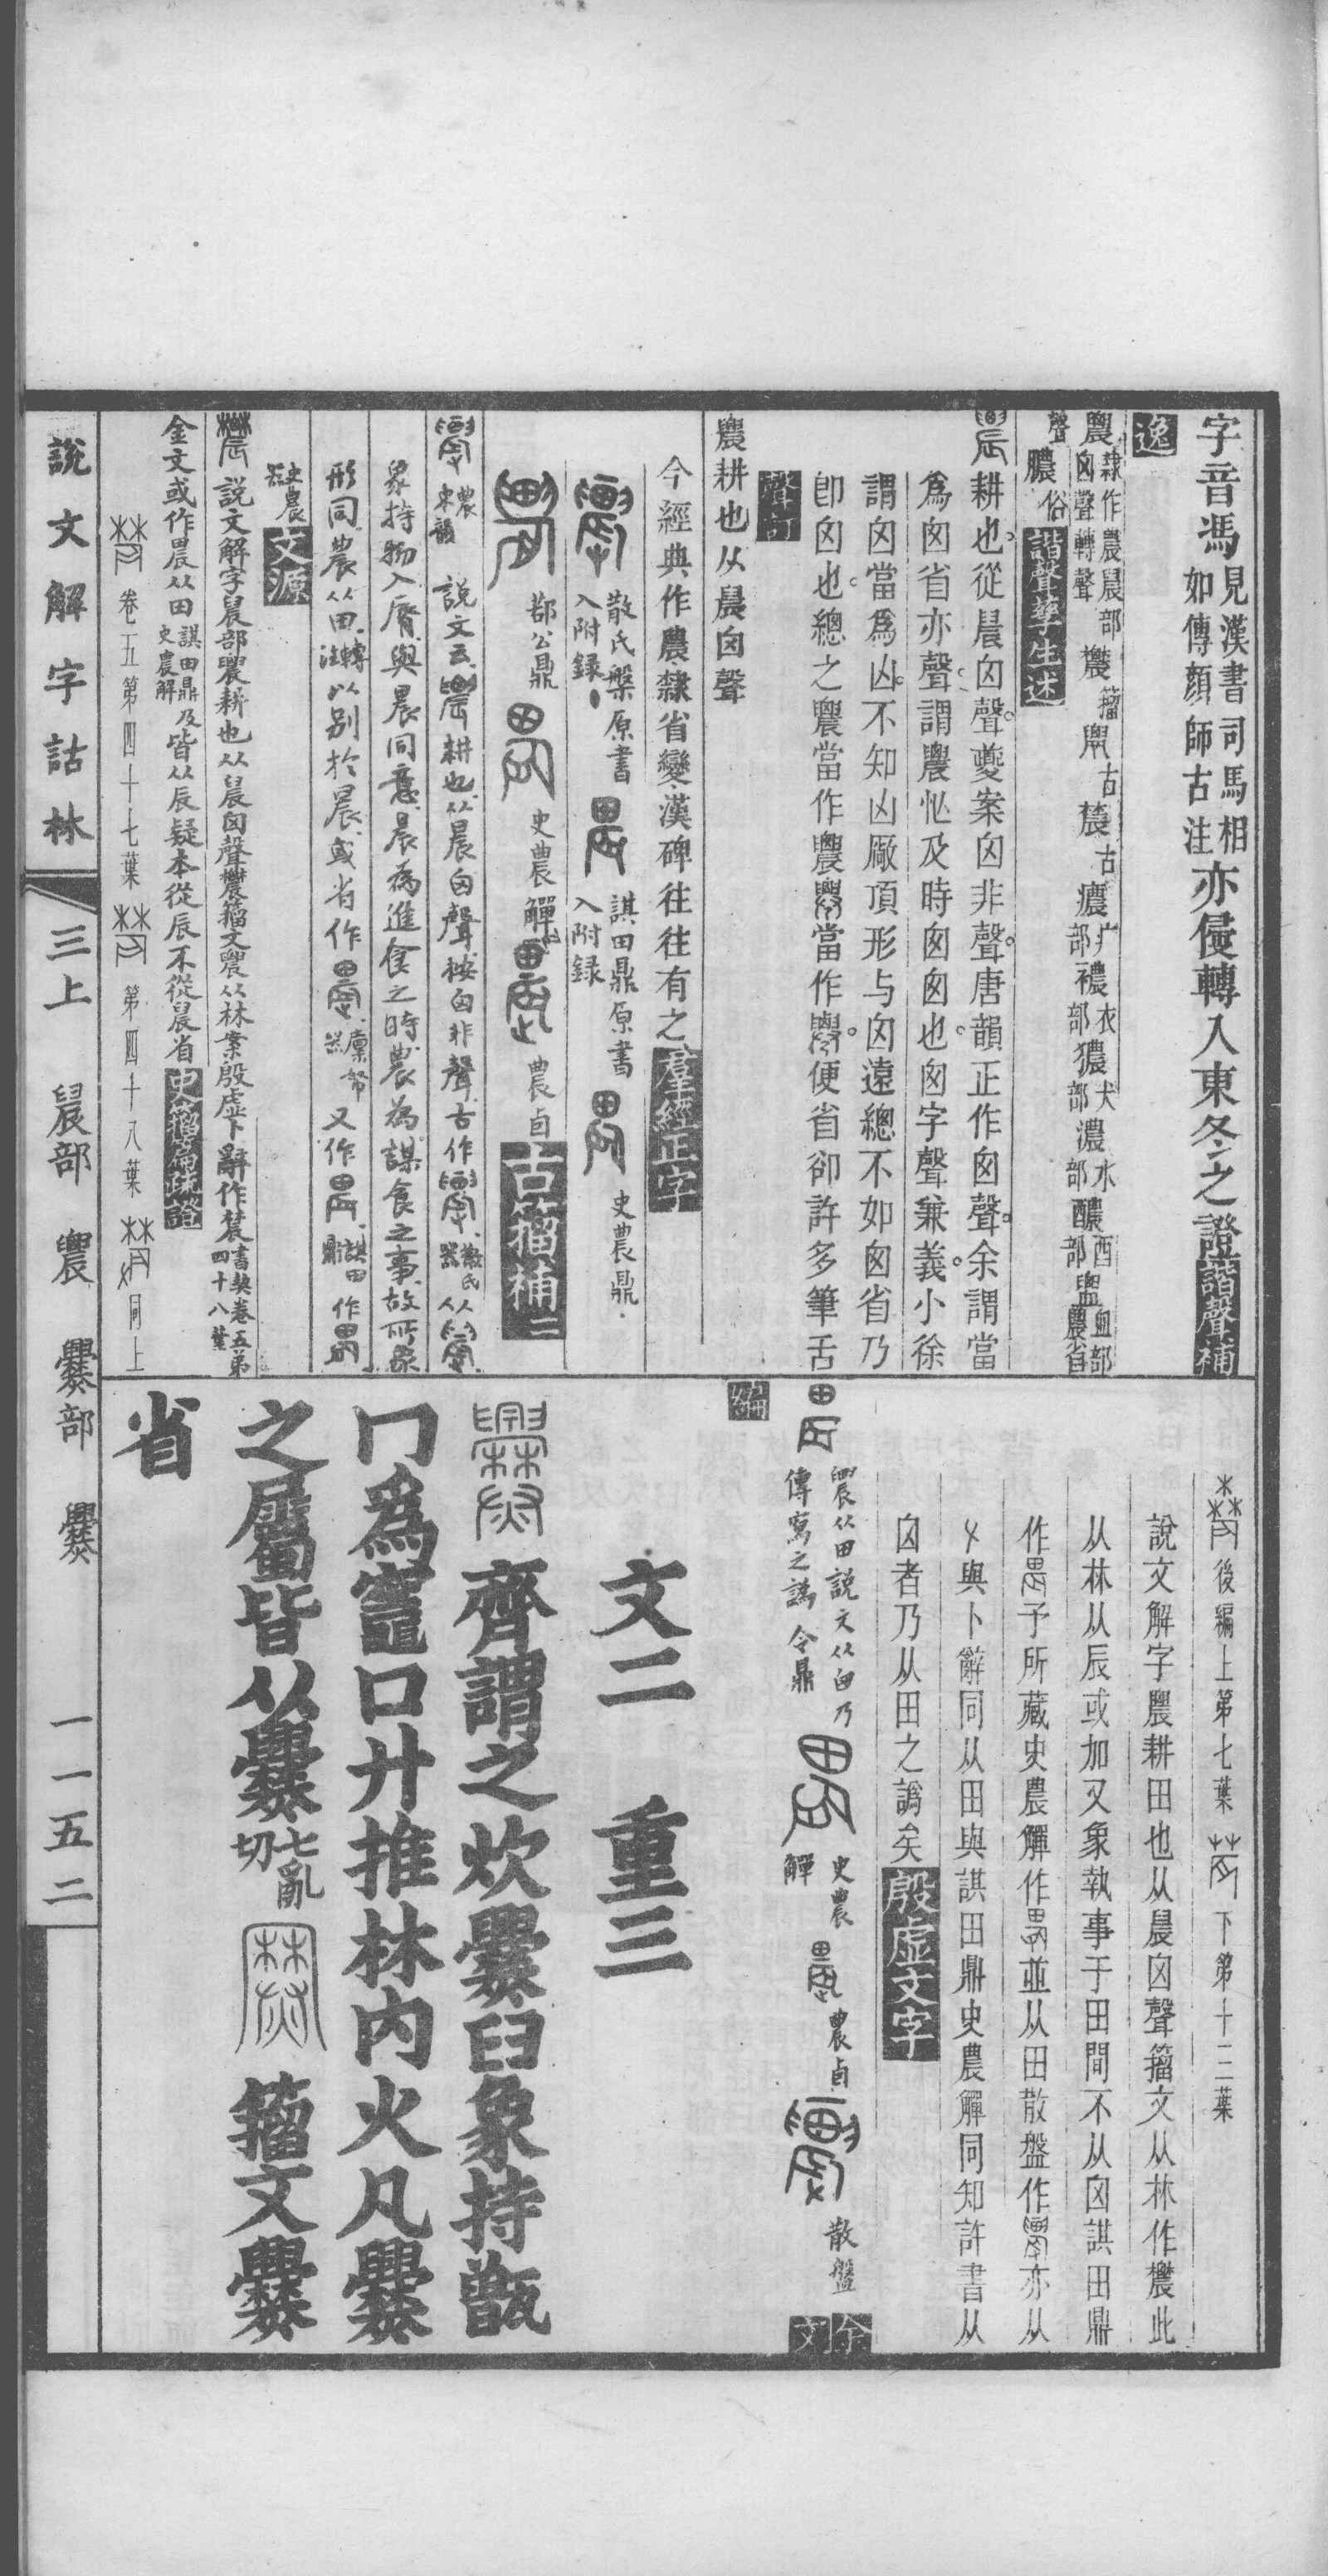 字音馮見漢書司馬相如傳顏師古注亦侵轉入東冬之證諧聲補
逸
農隸作農晨部囟聲轉聲 籀 古 古 癑疒部 襛衣部 獳犬部 濃水部 醲酉部 盥血部農省
聲 膿俗 諧聲孳生述
耕也從晨囟聲夔案囟非聲唐韻正作囪聲余謂當
爲囪省亦聲謂農怱及時囪囪也囪字聲兼義小徐
謂囟當爲凶不知凶厰頂形与囟遠總不如囪省乃
卽囟也總之農當作農 當作 便省卻許多筆舌
聲訂
農耕也从晨囟聲
今經典作農隸省變漢碑往往有之羣經正字
散氏槃原書入附録 諆田鼎原書入附録 史農鼎
鄀公鼎 史農觶 農卣 古籀補二
農 東韻 說文云 耕也从晨囟聲按囟非聲古作 散氏器 从
象持物入脣與晨同意晨為進食之時農為謀食之事故所象
形同農从田轉注以別於晨或省作 又作 諆田鼎 作
史農器 文源
說文解字晨部農耕也从晨囟聲 籀文農从林案殷虛卜辭作 書契卷五第四十八葉
金文或作農从田諆田鼎及史農觶皆从辰疑本從辰不從晨省 史籀篇疏證
卷五第四十七葉 第四十八葉 同上
後編上第七葉 下第十三葉
說文解字農耕田也从晨囟聲籀文从林作 此
从林从辰或加又象執事于田間不从囟諆田鼎
作 予所藏史農觶作 並从田散盤作 亦从
與卜辭同从田與諆田鼎史農觶同知許書从
囟者乃从田之譌矣 殷虛文字
農从田說文从囟乃傳寫之譌 令鼎 史農觶 農卣 散盤 金文
編
文二 重三
齊謂之炊爨臼象持甑
冂爲竈口廾推林內火凡爨
之屬皆从爨七亂切 籀文爨
省
說文解字詁林 三上 晨部 農 爨部 爨 一一五二